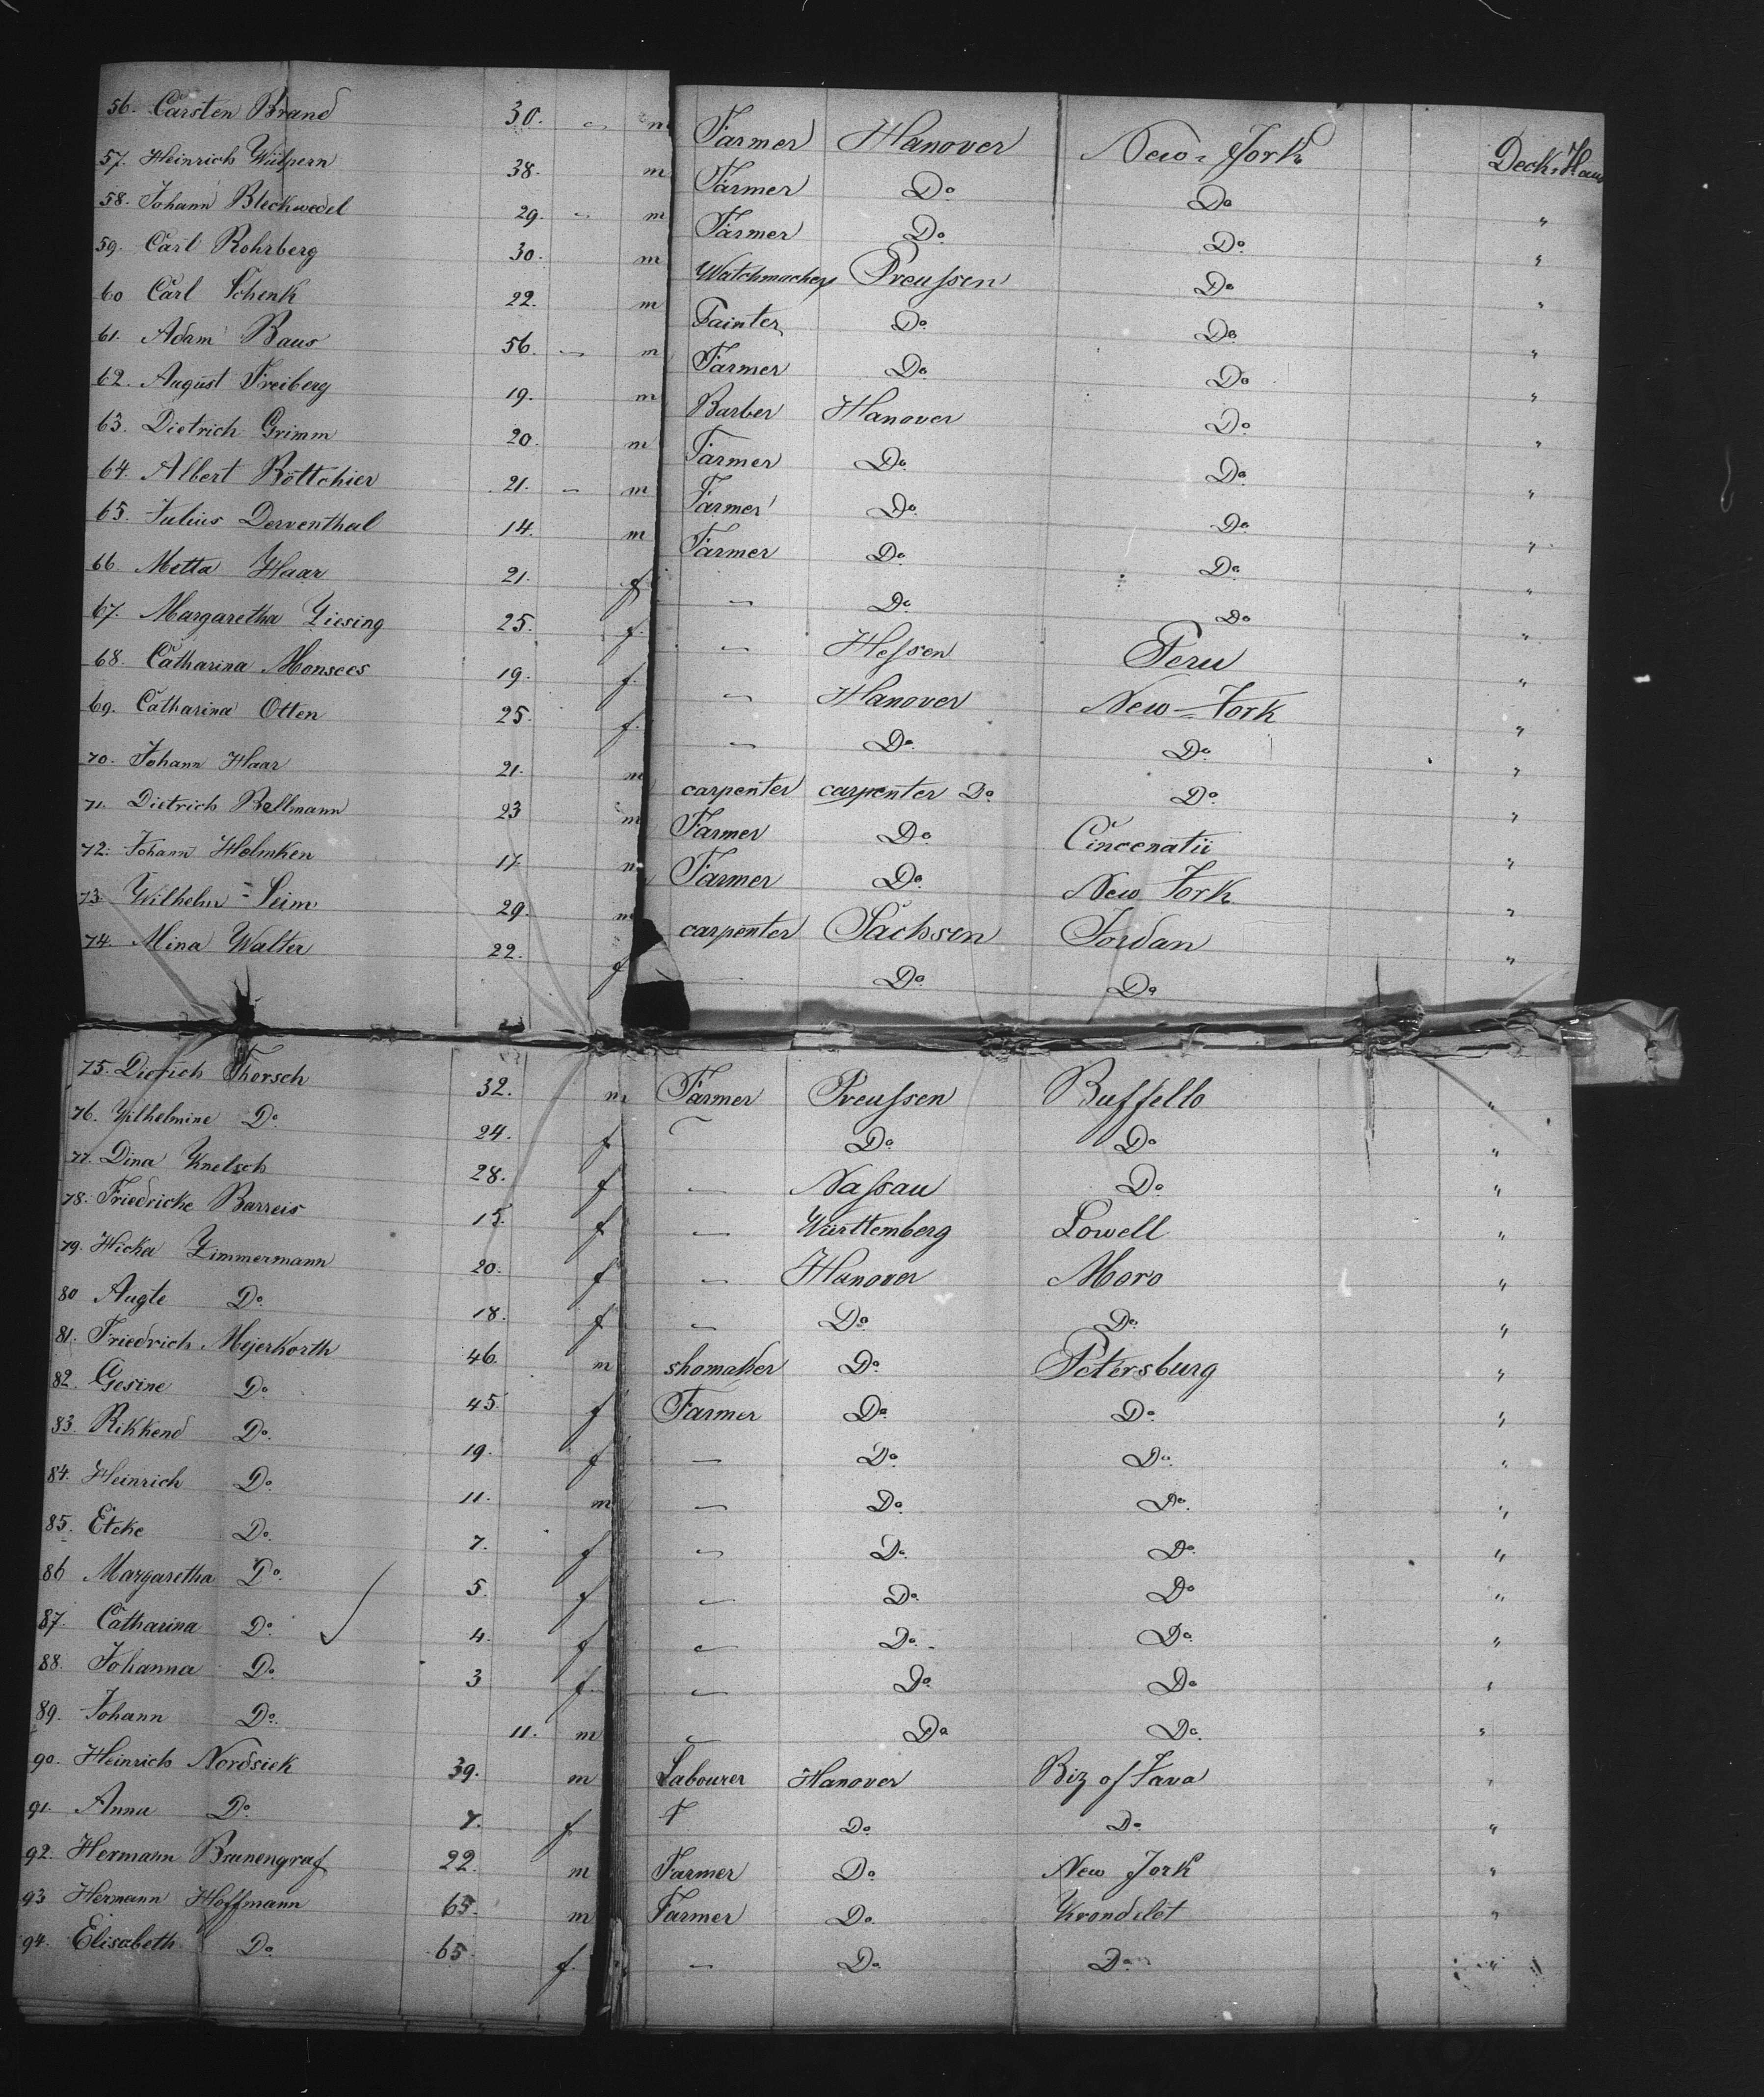 56. Carsten Brand 30. " m Farmer Hanover New-York Deck Haus
57. Heinrich Wülpern 38. m Farmer Do Do "
58. Johann Bleckwedel 29. " m Farmer Do Do "
59. Carl Rohrberg 30. m Watchmacher Preußen Do "
60 Carl Schenk 22. m Painter Do Do "
61. Adam Baus 56. — m Farmer Do Do "
62. August Freiberg 19. m Barber Hanover Do "
63. Dietrich Grimm 20. m Farmer Do Do "
64. Albert Böttchier 21. — m Farmer Do Do "
65. Julius Derventhal 14. m Farmer Do Do "
66. Metta Haar 21. f — Do Do "
67. Margaretha Giesing 25. f. — Heßen Peru "
68. Catharina Monsees 19. f. — Hanover New-York "
69. Catharina Otten 25. f. — Do Do "
70. Johann Haar 21. m carpenter carpenter Do Do "
71. Dietrich Bellmann 23 m Farmer Do Cincenatii "
72. Johann Holmken 17. m Farmer Do New York "
73. Wilhelm Seim 29. m carpenter Sachsen Jordan "
74. Mina Walter 22. f — Do Do
75. Dietrich Thorsch 32. m Farmer Preußen Buffello "
76. Wilhelmine Do 24. f — Do Do "
77. Dina Knelsch 28. f — Naßau Do "
78. Friedricke Barreis 15. f — Württemberg Lowell "
79. Hicka Zimmermann 20. f — Hanover Moro "
80 Augte Do 18. f — Do Do "
81. Friedrich Mejerkorth 46. m shomaker Do Petersburg "
82. Gesine Do 45. f Farmer Do Do "
83. Rikkend Do. 19. f — Do Do "
84. Heinrich Do 11. m — Do Do "
85. Etcke Do 7. f — Do Do "
86 Margaretha Do 5. f — Do Do "
87. Catharina Do 4. f — Do Do "
88. Johanna Do 3 f. — Do Do "
89. Johann Do 11. m — Do Do "
90. Heinrich Nordsiek 39. m Labourer Hanover Biz of Java "
91. Anna Do 7. f F Do Do "
92. Hermann Brunengraf 22. m Farmer Do New York "
93 Hermann Hoffmann 65. m Farmer Do Krondelot "
94. Elisabeth Do 65 f. — Do Do "